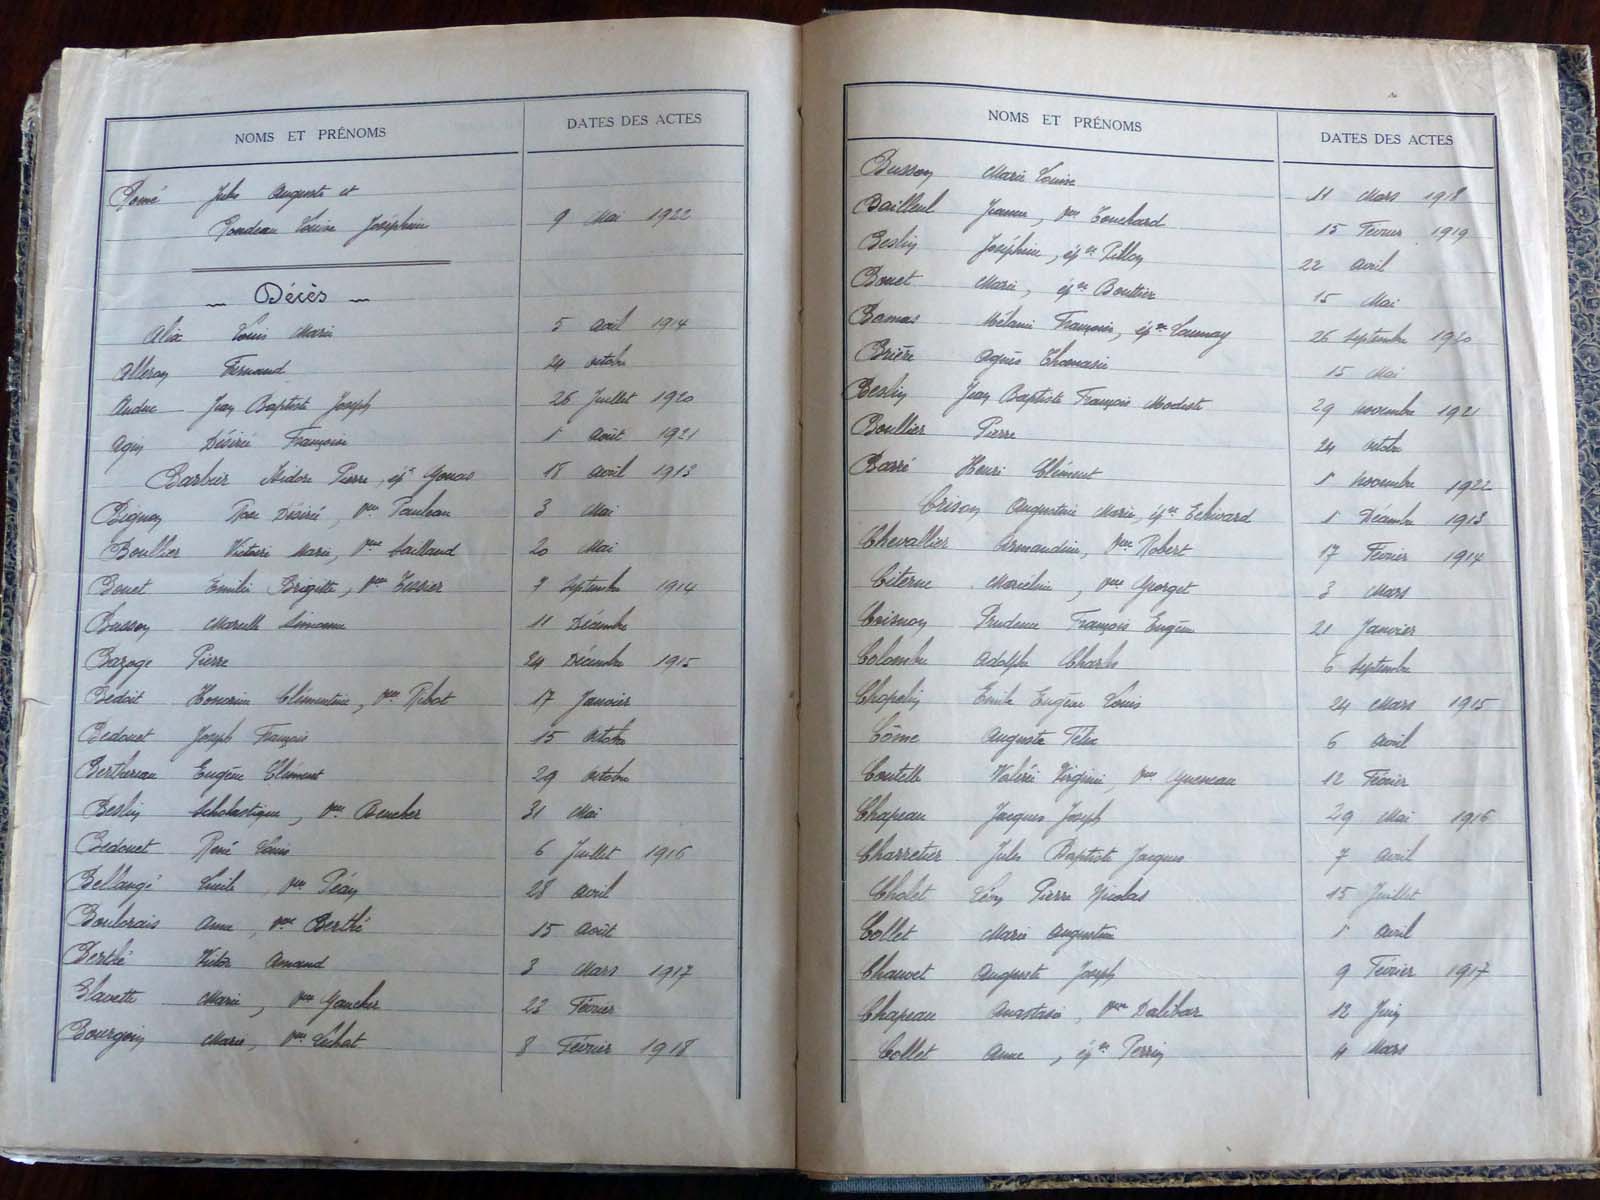 NOMS ET PRÉNOMS DATES DES ACTES
Jules Auguste et
Louise Joséphine 9 Mai 1922
Décès
Alix Louis Marie 5 avril 1914
Alleron Fernand 24 octobre
Auduc Jean Baptiste Joseph 26 Juillet 1920
Agin Désirée Françoise 1 Août 1921
Barbier Isidore Pierre, épx 18 avril 1913
Désirée, vve 3 Mai
Boullier Victoire Marie, vve Caillaud 20 Mai
Bouet Emilie Brigitte, vve Tessier 7 Septembre 1914
Busson Marcelle Simonne 11 Décembre
Bazoge Pierre 24 Décembre 1915
Bédoit Honorine Clémentine, vve Ribot 17 Janvier
Bedouet Joseph François 15 octobre
Berthereau Eugène Clément 29 octobre
Beslin Scholastique, vve 31 Mai
Bedouet René Louis 6 Juillet 1916
Bellangé Lucile, vve Péan 28 avril
Boulorais Anne, vve Berthé 15 Août
Berthé Victor Amand 3 Mars 1917
Blavette Marie, vve Gaucher 23 Février
Bourgoin Marie, vve Lichat 8 Février 1918
NOMS ET PRÉNOMS DATES DES ACTES
Busson Marie Louise 11 Mars 1918
Bailleul Jeanne, vve Touchard 15 Février 1919
Beslin Joséphine, épse Pillon 22 avril
Bouet Marie, épse Bouttier 15 Mai
Bamas Mélanie Françoise, épse Launay 26 Septembre 1920
Brière Agnès 15 Mai
Beslin Jean Baptiste François Modeste 29 novembre 1921
Boullier Pierre 24 octobre
Barré Henri Clément 1 novembre 1922
Crison Augustine Marie, épse 1 Décembre 1913
Chevallier Armandine, vve Robert 17 Février 1914
Citerne Marcéline, vve Georget 3 Mars
Coisnon Prudence François Eugène 21 Janvier
Colombe Adolphe Charles 6 Septembre
Chapelin Emile Eugène Louis 24 Mars 1915
Côme Auguste Félix 6 avril
Coutelle Valérie Virginie, vve 12 Février
Chapeau Jacques Joseph 29 Mai 1916
Charretier Jules Baptiste Jacques 7 avril
Cholet Léon Pierre Nicolas 15 Juillet
Collet Marie Augustine 1 avril
Chauvet Auguste Joseph 9 Février 1917
Chapeau Anastasie, vve Dalibar 12 Juin
Collet Anne, épse Perrin 4 Mars